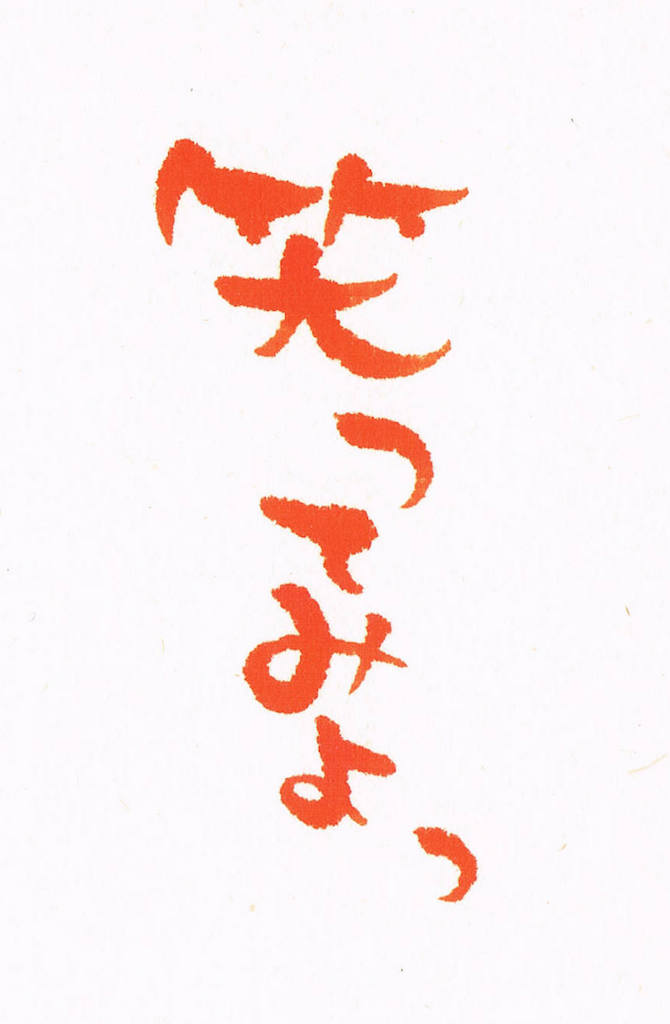 笑ってみよっ